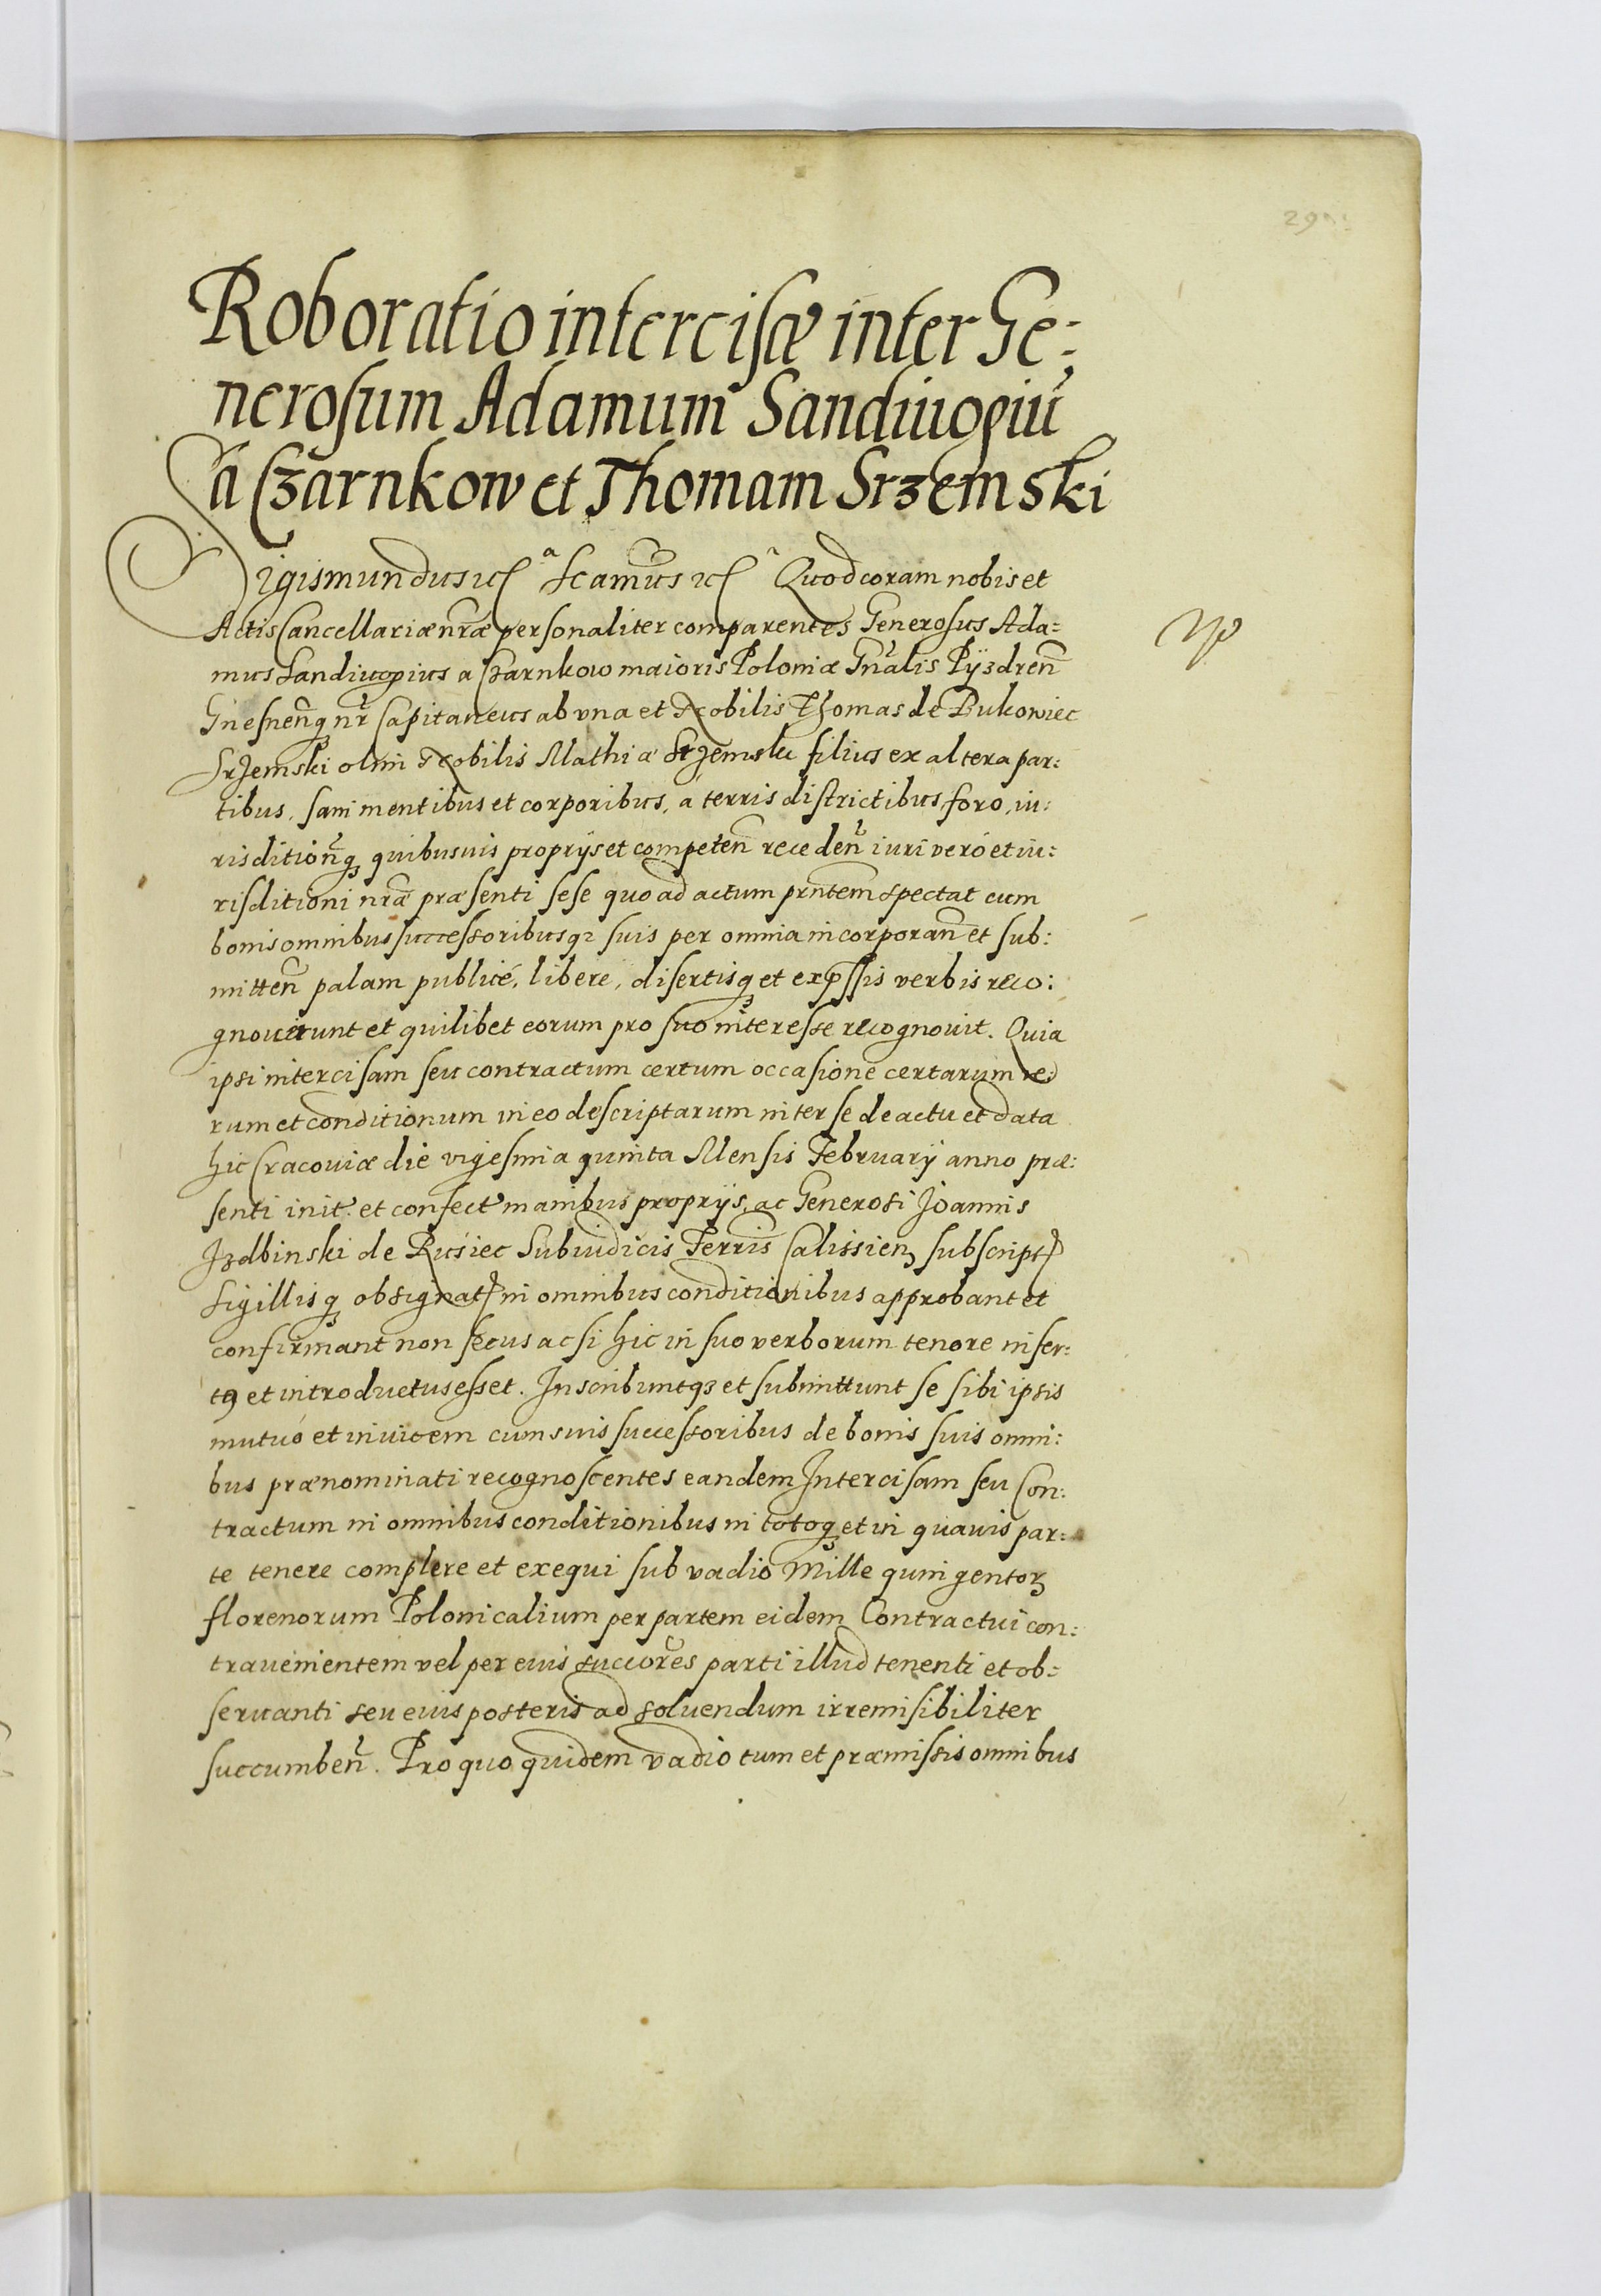 Roboratio intercisæ inter Ge:
nerosum Adamum Sandiuogiũ
a Czarnkow et Thomam Srzemski
Sigismundus etc. Sc̃amus etc. Quod coram nobis et
Actis Cancellariæ nr̃æ personaliter comparentes Generosus Ada:
mus Sandiuogius a Czarnkow maioris Poloniæ Gñalis Pyzdreñ
Gnesneñq nr̃ Capitaneus ab vna et Nobilis Thomas de Bukowiec
Srzemski olim Nobilis Mathiæ Srzemski filius ex altera par:
tibus, sani mentibus et corporibus, a terris districtibus foro, iu:
risditionq̃ quibusuis proprijs et competeñ recedeñ iuri veró et iu:
risditioni nr̃æ præsenti sese quo ad actum pr̃ntem spectat cum
bonis omnibus successoribusq suis per omnia incorporañ et sub:
mitteñ palam publicé, libere, disertisq et exp̃ssis verbis reco:
gnouerunt et quilibet eorum pro suo interesse recognouit. Quia
ipsi intercisam seu contractum certum occasione certarum re:
rum et conditionum in eo descriptarum inter se de actu et data
hic Cracouiæ die vigesima quinta Mensis February anno præ:
senti init et confect manibus proprijs, ac Generosi Joannis
Jzdbinski de Rusiec Subiudicis Terris Calissien subscript
sigillisq obsignat in omnibus conditionibus approbant et
confirmant non secus ac si hic in suo verborum tenore inser:
t9 et introductus esset. Inscribuntq3 et submittunt se sibi ipsis
mutuó et inuicem cum suis successoribus de bonis suis omni:
bus prænominati recognoscentes eandem Intercisam seu Con:
tractum in omnibus conditionibus in totoq et in quauis par:
te tenere complere et exequi sub vadio Mille quingentor
florenorum Polonicalium per partem eidem Contractui con:
trauenientem vel per eius succõres parti illud tenenti et ob:
seruanti seu eius posteris ad soluendum irremisibiliter
succumbeñ. Pro quo quidem vadio tum et præmissis omnibus